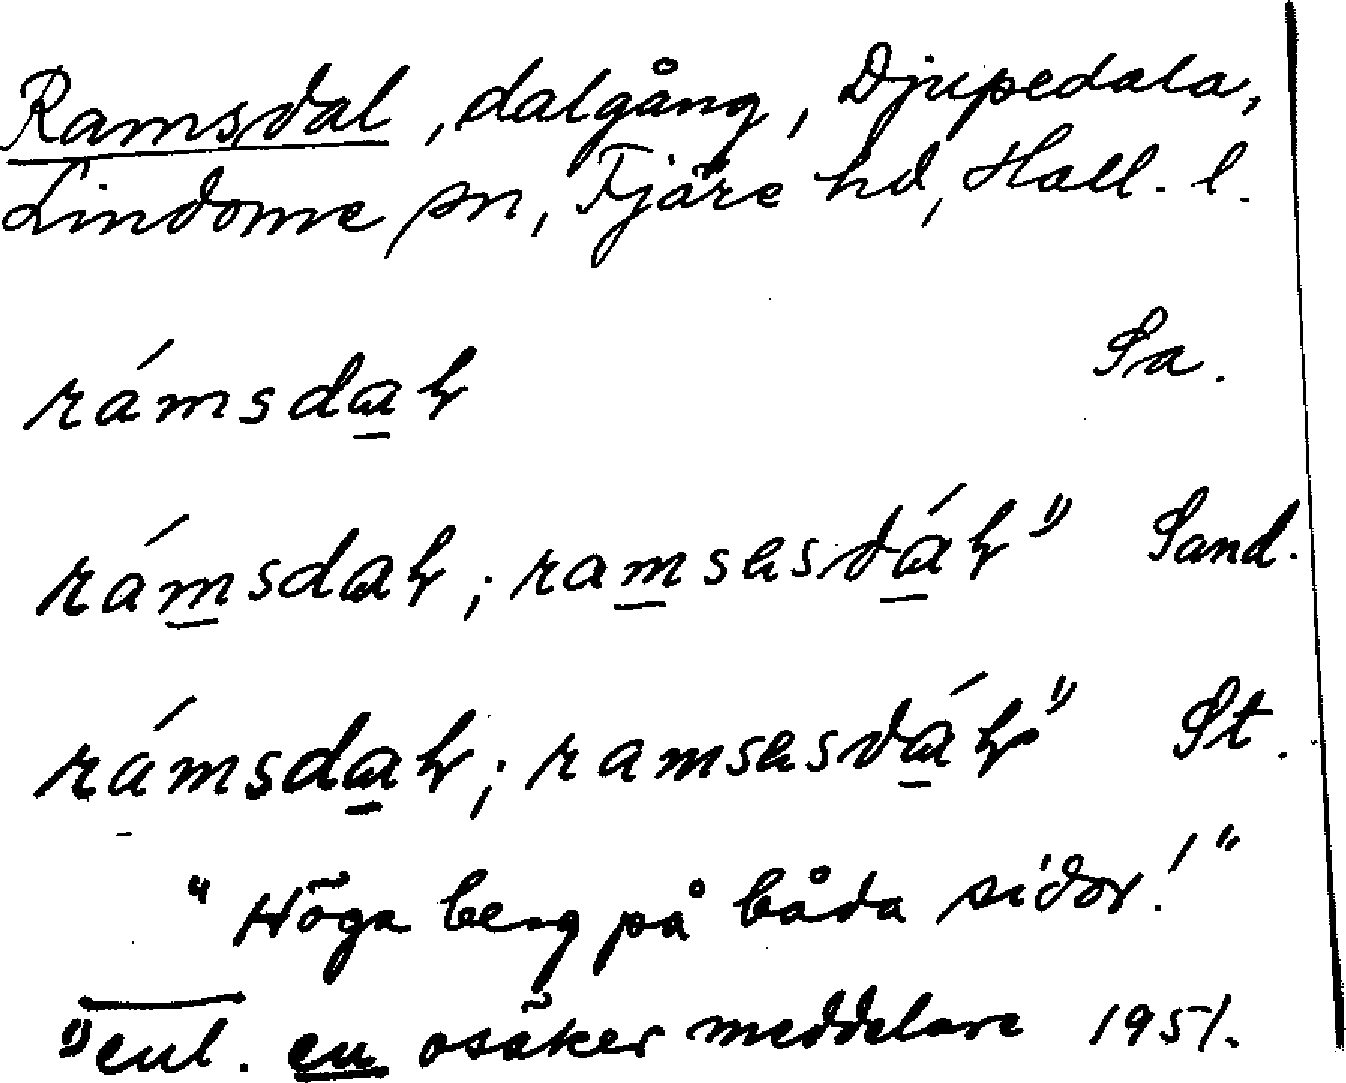 Ramsdal, dalgång, Djupedala,
Lindome sn, Fjäre hd, Hall. l.
rámsdał Sa.
rámsdał; ramsasdáł 1) Sand.
rámsdał; ramsasdáł 1) St.
"Höga berg på båda sidor!"
1) enl. en osäker meddelare 1951.